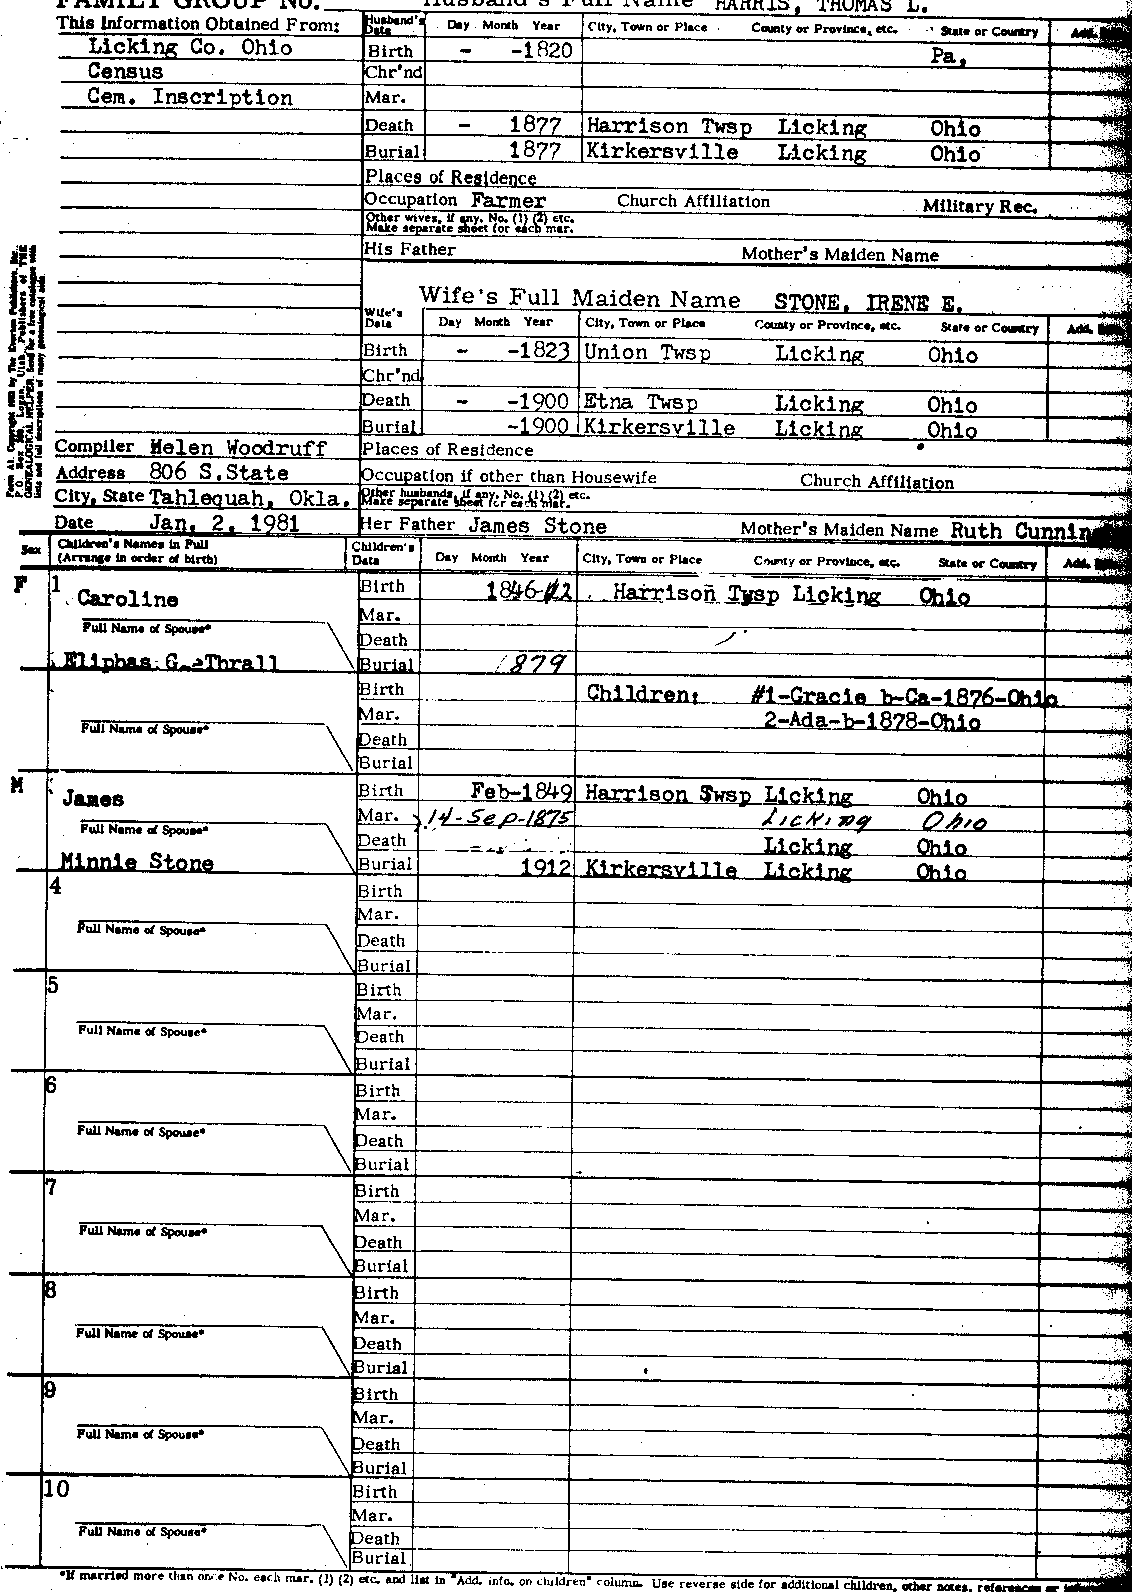 FAMILY GROUP No. Husband's Full Name HARRIS, THOMAS L.
This Information Obtained From: Husband's Data Day Month Year City, Town or Place County or Province, etc. State or Country Add.
Licking Co. Ohio Birth - -1820 Pa.
Census Chr'nd
Cem. Inscription Mar.
Death - 1877 Harrison Twsp Licking Ohio
Burial 1877 Kirkersville Licking Ohio
Places of Residence
Occupation Farmer Church Affiliation Military Rec.
Other wives, if any. No. (1) (2) etc.
Make separate sheet for each mar.
His Father Mother's Maiden Name
Wife's Full Maiden Name STONE, IRENE E.
Wife's Data Day Month Year City, Town or Place County or Province, etc. State or Country Add.
Birth - -1823 Union Twsp Licking Ohio
Chr'nd
Death - -1900 Etna Twsp Licking Ohio
Burial -1900 Kirkersville Licking Ohio
Compiler Helen Woodruff Places of Residence
Address 806 S.State Occupation if other than Housewife Church Affiliation
City, State Tahlequah, Okla. Other husbands, if any. No. (1) (2) etc.
Make separate sheet for each mar.
Date Jan. 2, 1981 Her Father James Stone Mother's Maiden Name Ruth Cunnin
Sex Children's Names in Full Children's Data Day Month Year City, Town or Place County or Province, etc. State or Country Add.
(Arrange in order of birth)
1 Caroline Birth 1846 Harrison Twsp Licking Ohio
Mar.
Full Name of Spouse* Death
Eliphas G. Thrall Burial 1879
Birth Children: #1-Gracie b-Ca-1876-Ohio
Mar. 2-Ada-b-1878-Ohio
Full Name of Spouse* Death
Burial
M James Birth Feb-1849 Harrison Swsp Licking Ohio
Mar. 14-Sep-1875 Licking Ohio
Full Name of Spouse* Death Licking Ohio
Minnie Stone Burial 1912 Kirkersville Licking Ohio
4 Birth
Mar.
Full Name of Spouse* Death
Burial
5 Birth
Mar.
Full Name of Spouse* Death
Burial
6 Birth
Mar.
Full Name of Spouse* Death
Burial
7 Birth
Mar.
Full Name of Spouse* Death
Burial
8 Birth
Mar.
Full Name of Spouse* Death
Burial
9 Birth
Mar.
Full Name of Spouse* Death
Burial
10 Birth
Mar.
Full Name of Spouse* Death
Burial
*If married more than once No. each mar. (1) (2) etc. and list in "Add. info. on children" column. Use reverse side for additional children, other notes, references or